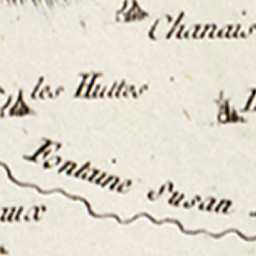 Chanais
les Huttes
Fontaine Susan
aux